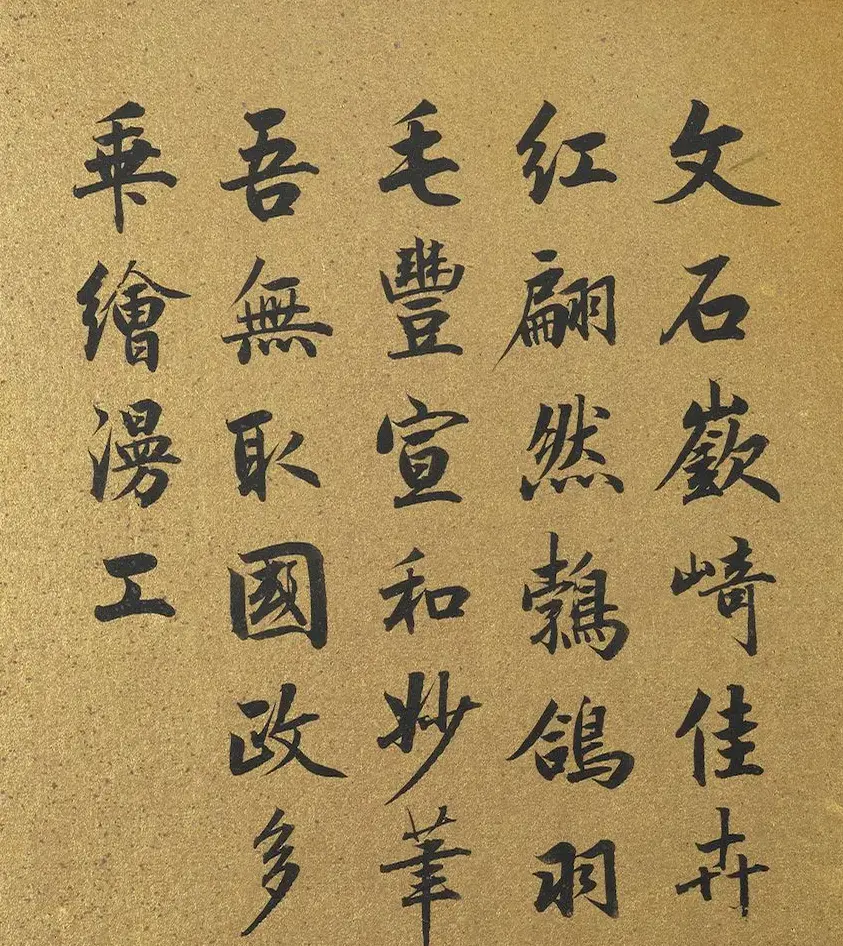 文石嶔崎佳卉
红翩然鶉鴿羽
毛豐宣和妙筆
吾無取國政多
乘繪漫工